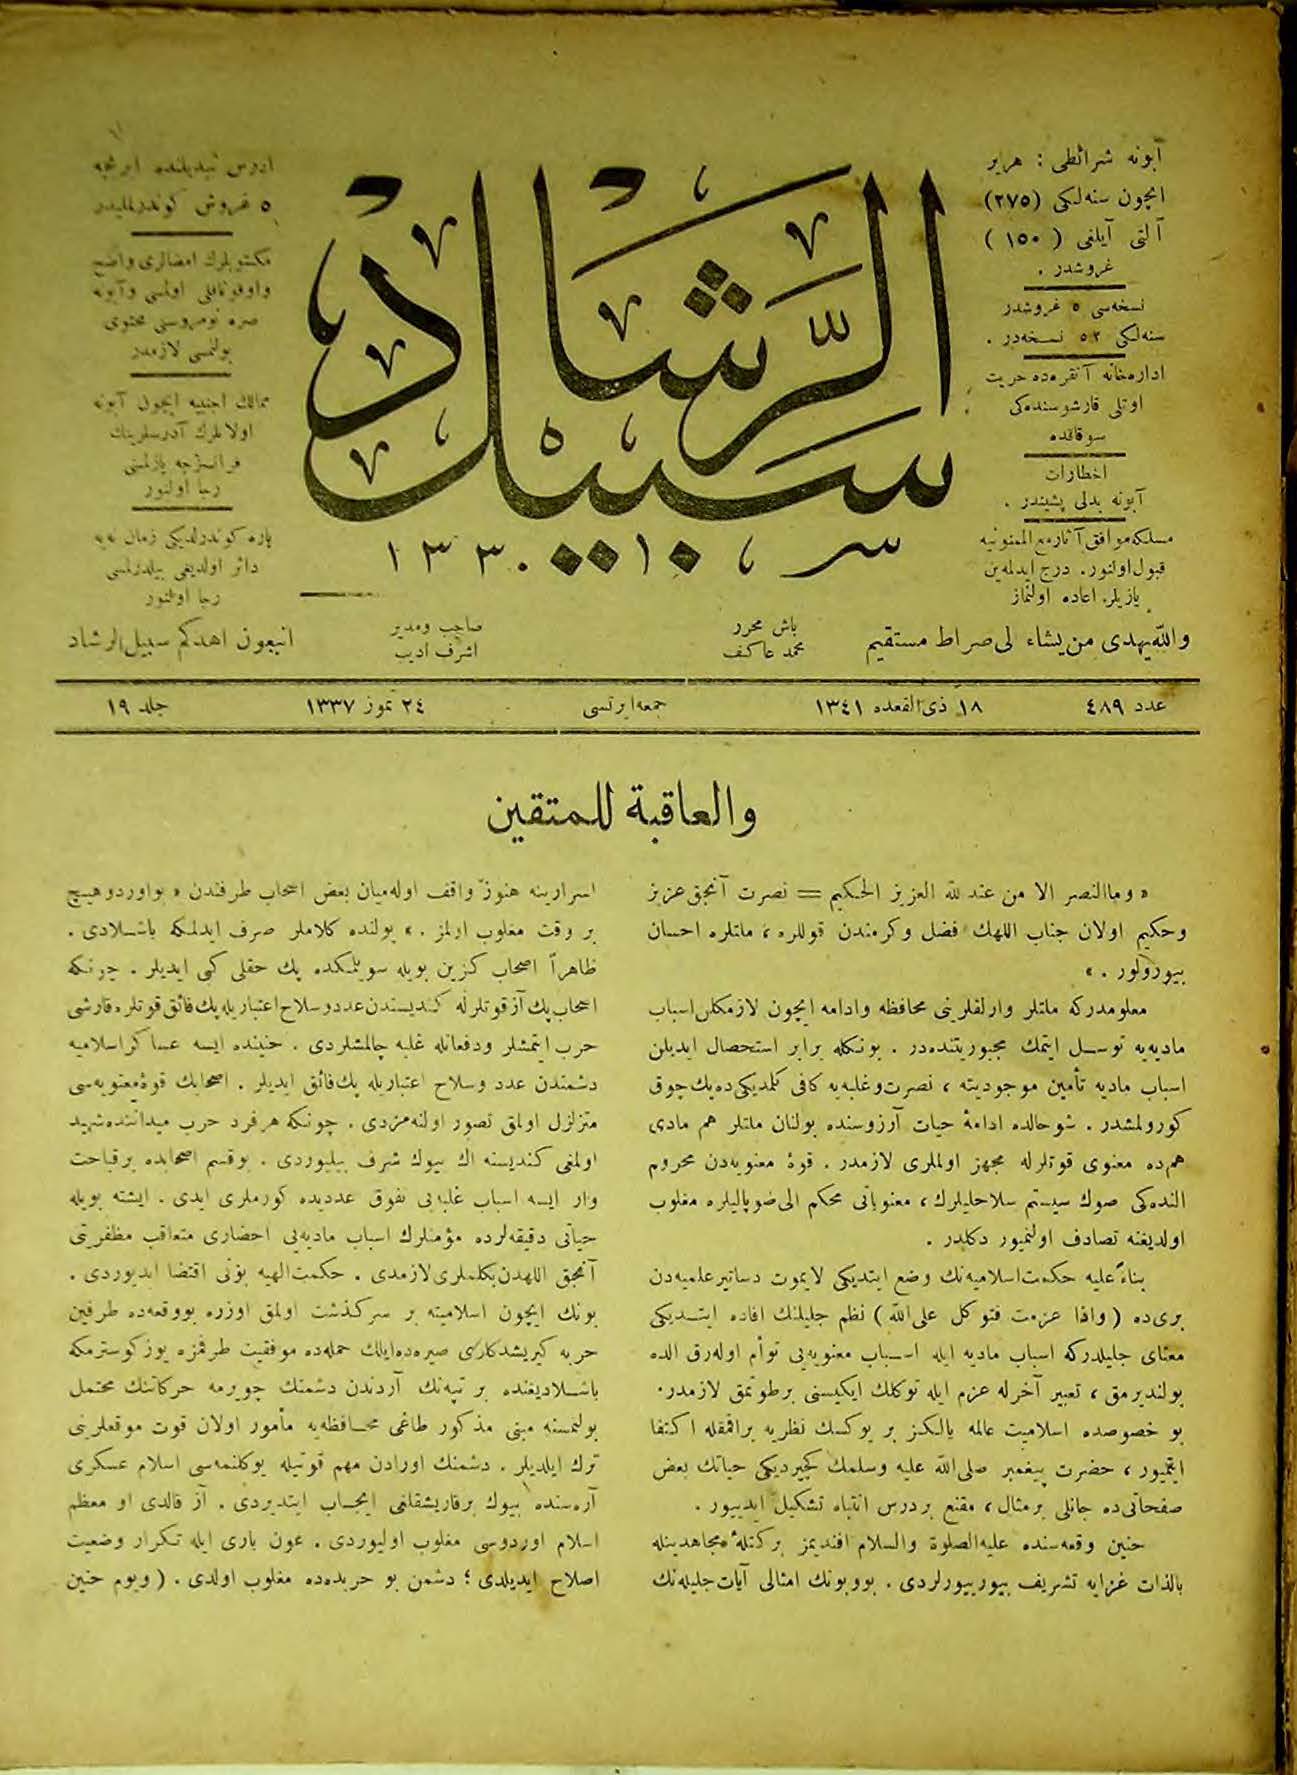 آبونه شرائطی : هر یر
ایچون سنه‌لکی (٢٧٥)
آلتی آیلغی ( ١٥٠ )
غروشدر .
نسخه‌سی ٥ غروشدر
سنه‌لکی ٥٢ نسخه‌در .
اداره‌خانه آنقره‌ده حریت
اوتلی قارشوسنده‌کی
سوقاقده
اخطارات
آبونه بدلی پشیندر .
مسلکه موافق آثار مع الممنونیه
قبول اولنور . درج ایدلمه‌ین
یازیلر اعاده اولنماز
سبیل الرشاد
١٣٣٠
آدرس تبدیلنده آیریجه
٥ غروش کوندرلملیدر
مکتوبلرك امضالری واضح
واوقوناقلی اولمسی وآبونه
صره نومروسنی محتوی
بولنمسی لازمدر
ممالك اجنبیه ایچون آبونه
اولانلرك آدرسلرینك
فرانسزجه یازلمسی
رجا اولنور
پاره کوندرلدیکی زمان نه‌یه
دائر اولدیغی بیلدرلمسی
رجا اولنور
والله یهدی من یشاء لی صراط مستقیم
باش محرر
محمد عاکف
صاحب ومدیر
اشرف ادیب
اتبعون اهدکم سبیل الرشاد
عدد ٤٨٩ ١٨ ذی القعده ١٣٤١ جمعه‌ایرتسی ٢٤ تموز ١٣٣٧ جلد ١٩
والعاقبة للمتقین
« وماالنصر الا من عند لله العزیز الحکیم = نصرت آنجق عزیز
وحکیم اولان جناب اللهك فضل وکرمندن قوللره ، ملتلره احسان
بیورولور . »
معلومدرکه ملتلر وارلقلرینی محافظه وادامه ایچون لازمکلن اسباب
مادیه‌یه توسـل ایتمك مجبوریتنده‌در . بونکله برابر استحصال ایدیلن
اسباب مادیه تأمین موجودیته ، نصرت وغلبه‌یه کافی کلمدیکی ده پك چوق
کورولمشدر . شو حالده ادامهٔ حیات آرزوسنده بولنان ملتلر هم مادی
هم ده معنوی قوتلرله مجهز اولملری لازمدر . قوهٔ معنویه‌دن محروم
النده‌کی صوك سیستم سلاحلیلرك ، معنویاتی محکم الی صوپالیلره مغلوب
اولدیغنه تصادف اولنمیور دکلدر .
بناءً علیه حکمت اسلامیه‌نك وضع ایتدیکی لایموت دساتیر علمیه‌دن
بری ده ( واذا عزمت فتوکل علی الله ) نظم جلیلنك افاده ایتـدیکی
معنای جلیلدرکه اسباب مادیه ایله اسباب معنویه‌یی توأم اوله‌رق الده
بولندیرمق ، تعبیر آخرله عزم ایله توکلك ایکیسنی بر طوتمق لازمدر .
بو خصوصده اسلامیت عالمه یالکز بر یوکسك نظریه براقمقله اکتفا
ایتمیور ، حضرت پیغمبر صلی الله علیه وسلمك کچیردیکی حیاتك بعض
صفحاتی ده جانلی بر مثال ، مقنع بر درس انتباه تشکیل ایدییور .
حنین وقعه‌سنده علیه الصلوة والسلام افندیمز بر کتلهٔ مجاهدینله
بالذات غزایه تشریف بیوریبورلردی . بو وبونك امثالی آیات جلیله‌نك
اسرارینه هنوز واقف اوله‌میان بعض اصحاب طرفندن « بو اوردو هیـچ
بر وقت مغلوب اولمز . » یولنده کلاملر صرف ایدلمکه باشـلادی .
ظاهراً اصحاب کزین بویله سویلمکده پك حقلی کبی ایدیلر . چونکه
اصحاب پك آز قوتلرله کندیسندن عدد وسلاح اعتباریله پك فائق قوتلره قارشی
حرب ایتمشلر ودفعاتله غلبه چالمشلردی . حنینده ایسه عساکر اسلامیه
دشمندن عدد وسلاح اعتباریله پك فائق ایدیلر . اصحابك قوهٔ معنویه‌سی
متزلزل اولمق تصور اولنه‌مزدی . چونکه هر فرد حرب میداننده شهید
اولمغی کندیسنه اك بیوك شرف بیلیوردی . بو قسم اصحابده بر قباحت
وار ایسه اسباب غلبه‌یی تفوق عددیده کورملری ایدی . ایشته بویله
حیاتی دقیقه‌لرده مؤمنلرك اسباب مادیه‌یی احضاری متعاقب مظفریتی
آنجق اللهدن بکلملری لازمدی . حکمت الهیه بونی اقتضا ایدیوردی .
بونك ایچون اسلامیته بر سرکذشت اولمق اوزره بو وقعه‌ده طرفین
حربه کیریشدکلری صیره‌ده ایلك حمله‌ده موفقیت طرفمزه یوز کوسترمکه
باشـلادیغنده بر تپه‌نك آردندن دشمنك چویرمه حرکاتنك محتمل
بولنمسنه مبنی مذکور طاغی محـافظه‌یه مأمور اولان قوت موقعلرینی
ترك ایلدیلر . دشمنك اورادن مهم قوتیله یوکلنمه‌سی اسلام عسکری
آره‌سنده بیوك بر قاریشقلغی ایجـاب ایتدیردی . آز قالدی او معظم
اسلام اوردوسی مغلوب اولیوردی . عون باری ایله تکرار وضعیت
اصلاح ایدیلدی ؛ دشمن بو حربده‌ده مغلوب اولدی . ( ویوم حنین